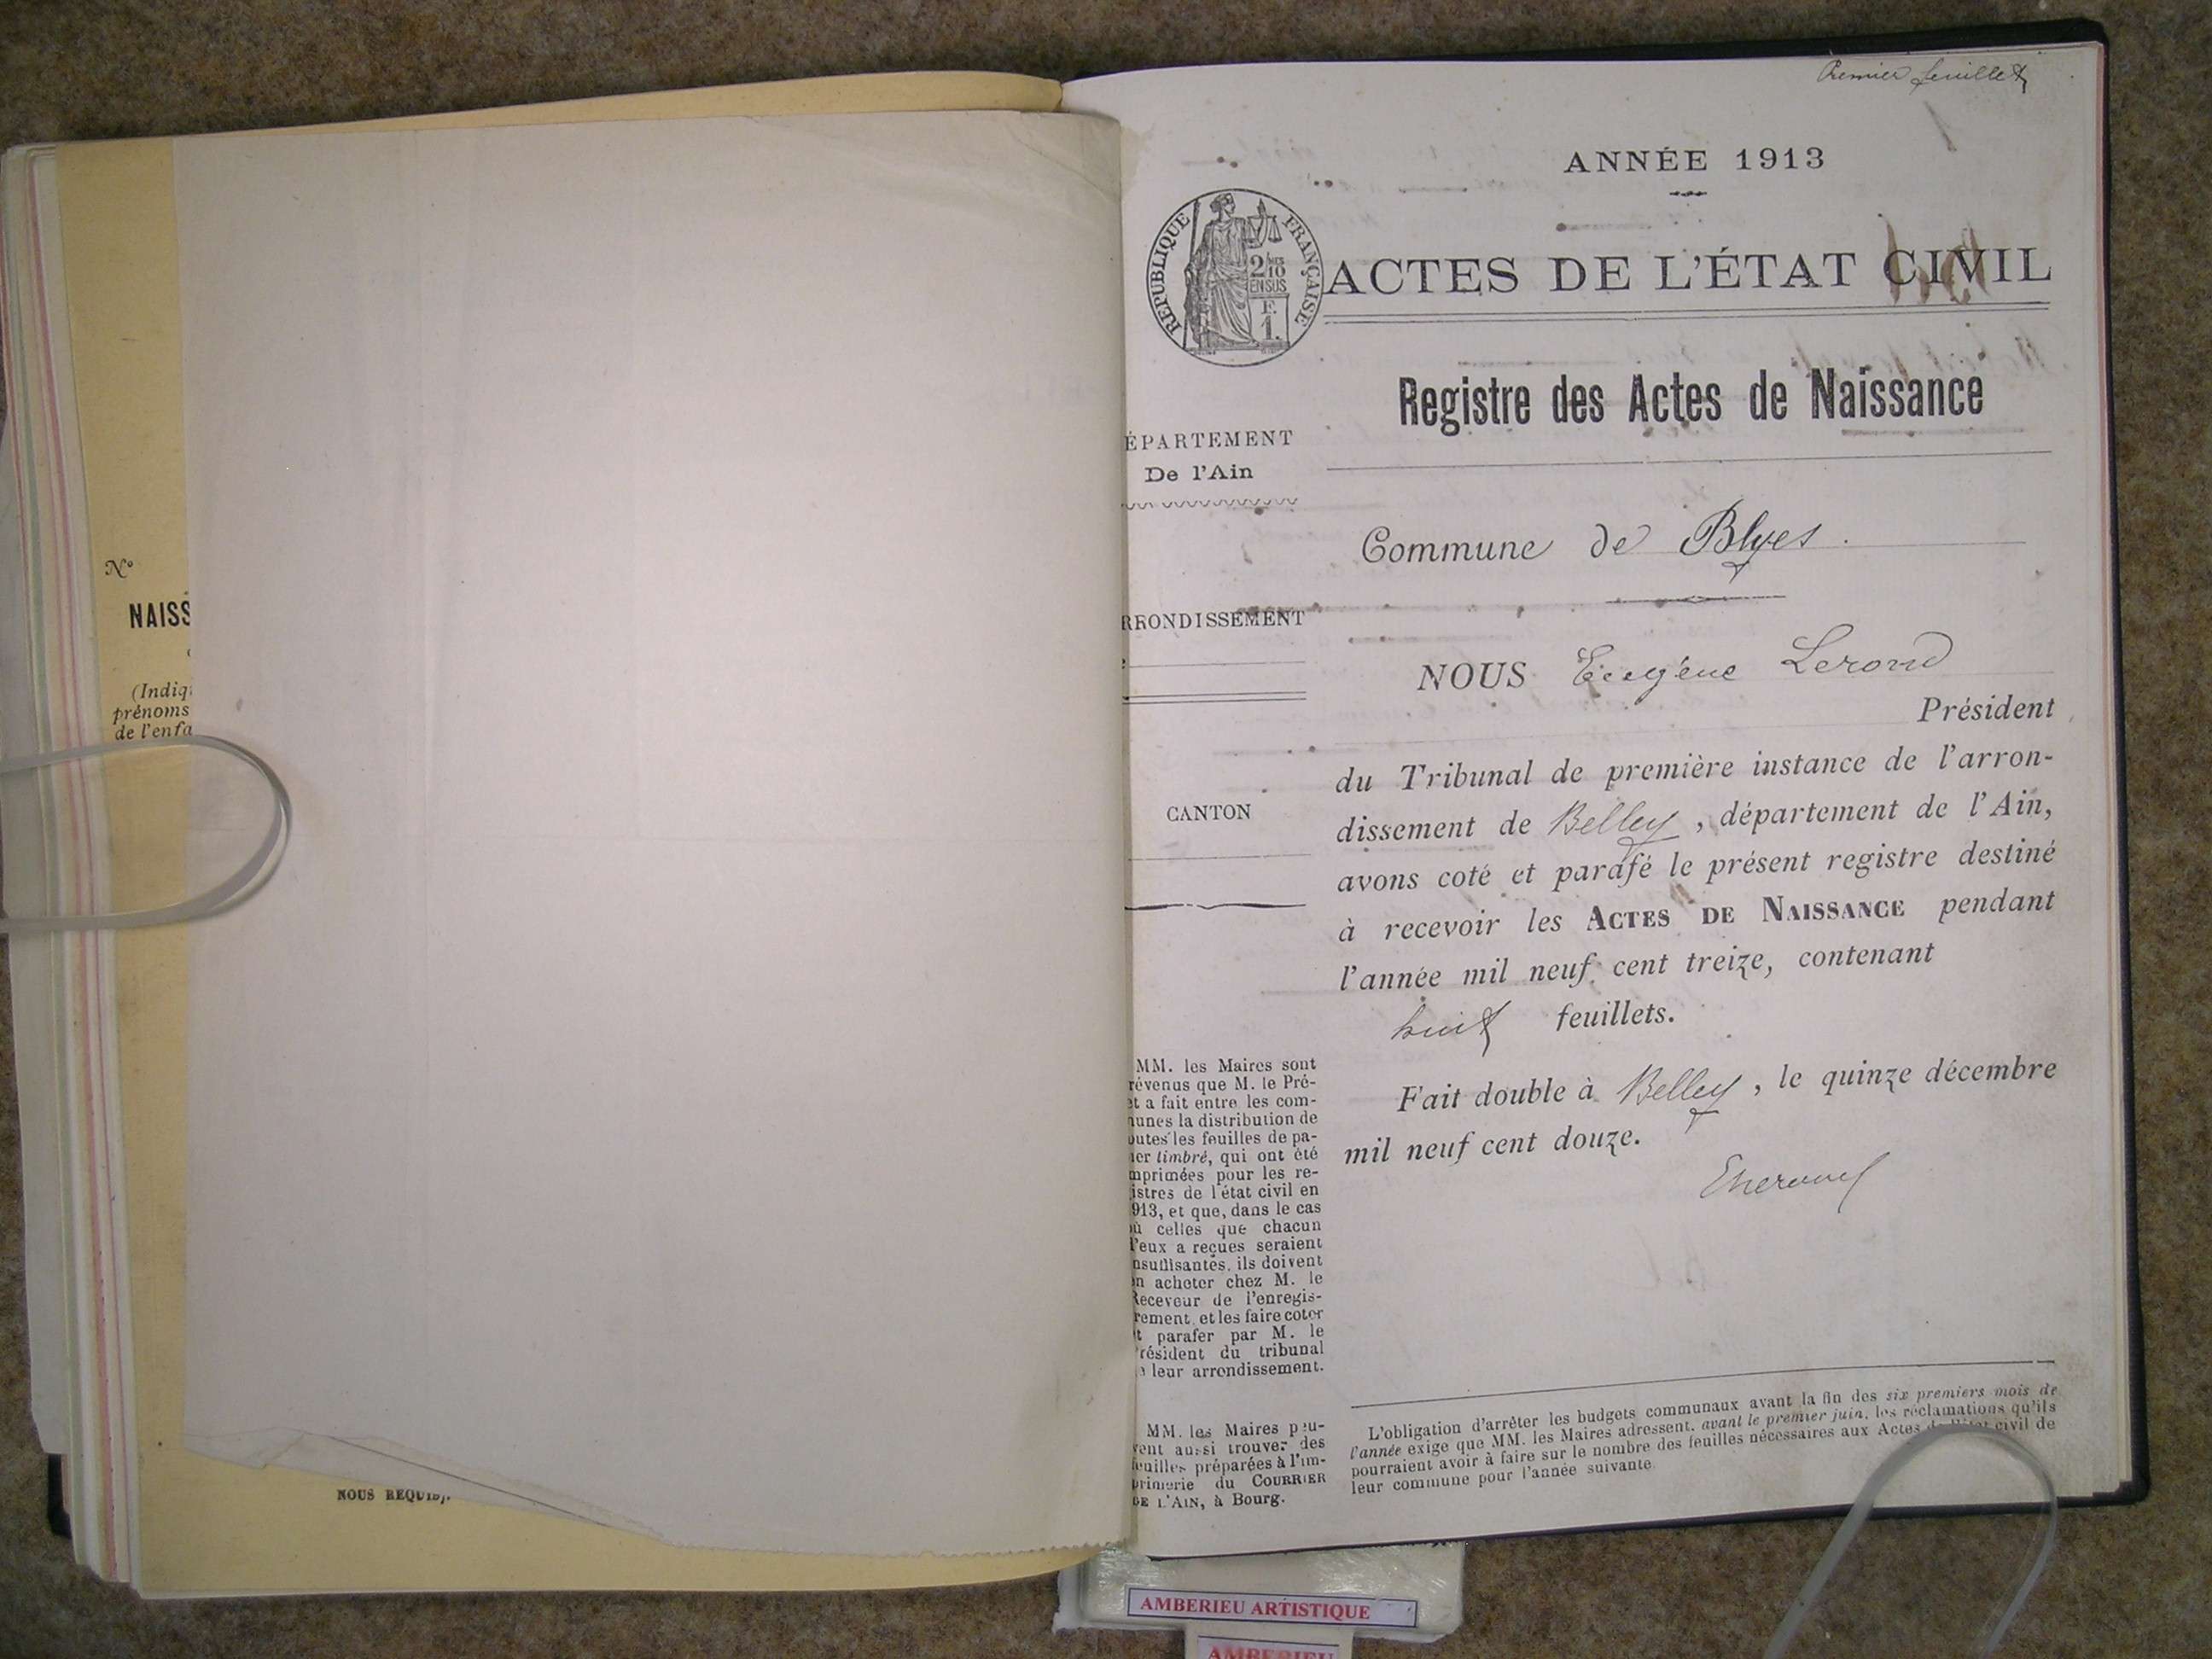 N°
NAISS
(Indiq
prénoms
de l'enfa
NOUS REQUIS).
Premier feuillet
ANNÉE 1913
RÉPUBLIQUE FRANÇAISE
2/10
EN SUS
F.
1.
ACTES DE L'ÉTAT CIVIL
Registre des Actes de Naissance
ÉPARTEMENT
De l'Ain
Commune de Blyes.
RRONDISSEMENT
CANTON
NOUS Eugène Lerond
Président
du Tribunal de première instance de l'arron-
dissement de Belley, département de l'Ain,
avons coté et parafé le présent registre destiné
à recevoir les ACTES DE NAISSANCE pendant
l'année mil neuf cent treize, contenant
huit feuillets.
Fait double à Belley, le quinze décembre
mil neuf cent douze.
MM. les Maires sont
révenus que M. le Pré-
et a fait entre les com-
unes la distribution de
outes les feuilles de pa-
ier timbré, qui ont été
mprimées pour les re-
istres de l'état civil en
913, et que, dans le cas
où celles que chacun
d'eux a reçues seraient
nsuffisantes, ils doivent
en acheter chez M. le
Receveur de l'enregis-
rement, et les faire coter
t parafer par M. le
résident du tribunal
leur arrondissement.
MM. les Maires peu-
vent aussi trouver des
feuilles préparées à l'im-
primerie du COURRIER
DE L'AIN, à Bourg.
L'obligation d'arrêter les budgets communaux avant la fin des six premiers mois de
l'année exige que MM. les Maires adressent, avant le premier juin, les réclamations qu'ils
pourraient avoir à faire sur le nombre des feuilles nécessaires aux Actes de l'état civil de
leur commune pour l'année suivante.
AMBERIEU ARTISTIQUE
AMBERIEU